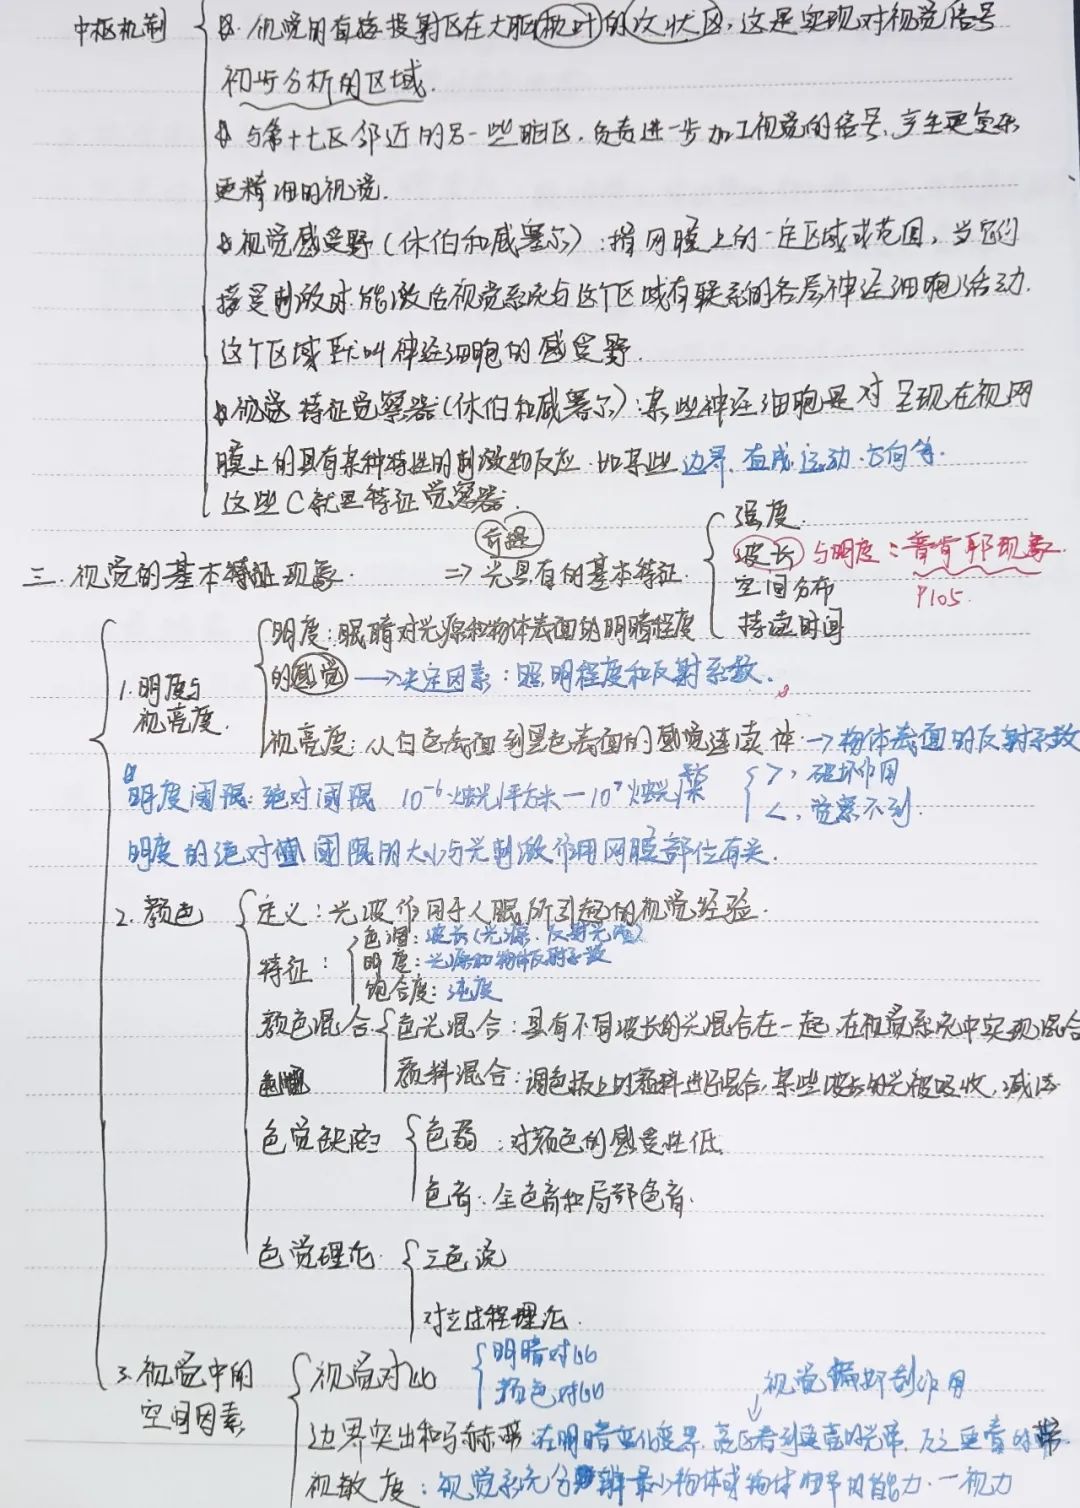 中枢机制
视觉的直接投射区在大脑枕叶的纹状区,这是实现对视觉信号
初步分析的区域.
与第十七区邻近的另一些脑区.负责进一步加工视觉的信号,产生更复杂
更精细的视觉.
视觉感受野(休伯和威塞尔):指网膜上的一定区域或范围,当它们
接受刺激时,能激活视觉系统与这个区域有联系的各层神经细胞活动.
这个区域就叫神经细胞的感受野.
视觉特征觉察器(休伯和威塞尔):某些神经细胞是对呈现在视网
膜上的具有某种特性的刺激物反应.如某些边界.直线.运动.方向等.
这些C就是特征觉察器.
三.视觉的基本特征现象. ⇒光具有的基本特征.
前提
强度.
波长与明度:普肯耶现象.
P105.
空间分布
持续时间
1.明度与
视亮度.
明度:眼睛对光源和物体表面的明暗程度
的感觉→决定因素:照明程度和反射系数.
视亮度:从白色表面到黑色表面的感觉连续体.→物体表面的反射系数
明度阈限:绝对阈限 10⁻⁶烛光/平方米—10⁷烛光/平方米
>,破坏作用
<,觉察不到.
明度的绝对阈限的大小与光刺激作用网膜部位有关.
2.颜色
定义:光波作用于人眼所引起的视觉经验.
特征:
色调:波长(光源.反射光谱)
明度:光源和物体反射系数
饱合度:纯度
颜色混合
色光混合:具有不同波长的光混合在一起,在视觉系统中实现混合
颜料混合:调色板上的颜料进行混合,某些波长的光被吸收.减法
色觉缺陷
色弱:对颜色的感受性低.
色盲:全色盲和局部色盲.
色觉理论
三色说
对立过程理论.
3.视觉中的
空间因素
视觉对比
明暗对比
颜色对比
视觉侧抑制作用
边界突出和马赫带:在明暗变化边界,亮区看到更亮的光带,反之更暗的带
视敏度:视觉系统分辨最小物体或物体细节的能力.一视力